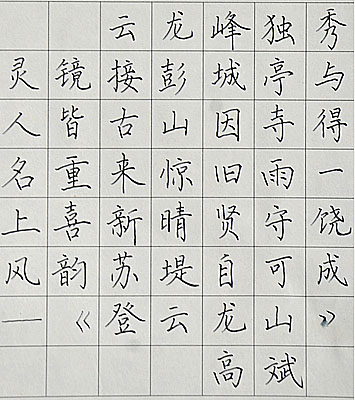 云龙峰独秀
灵镜接彭城亭与
人皆古山因寺得
名重来惊旧雨一
上喜新晴贤守饶
风韵苏堤自可成
—《登云龙山》
高斌